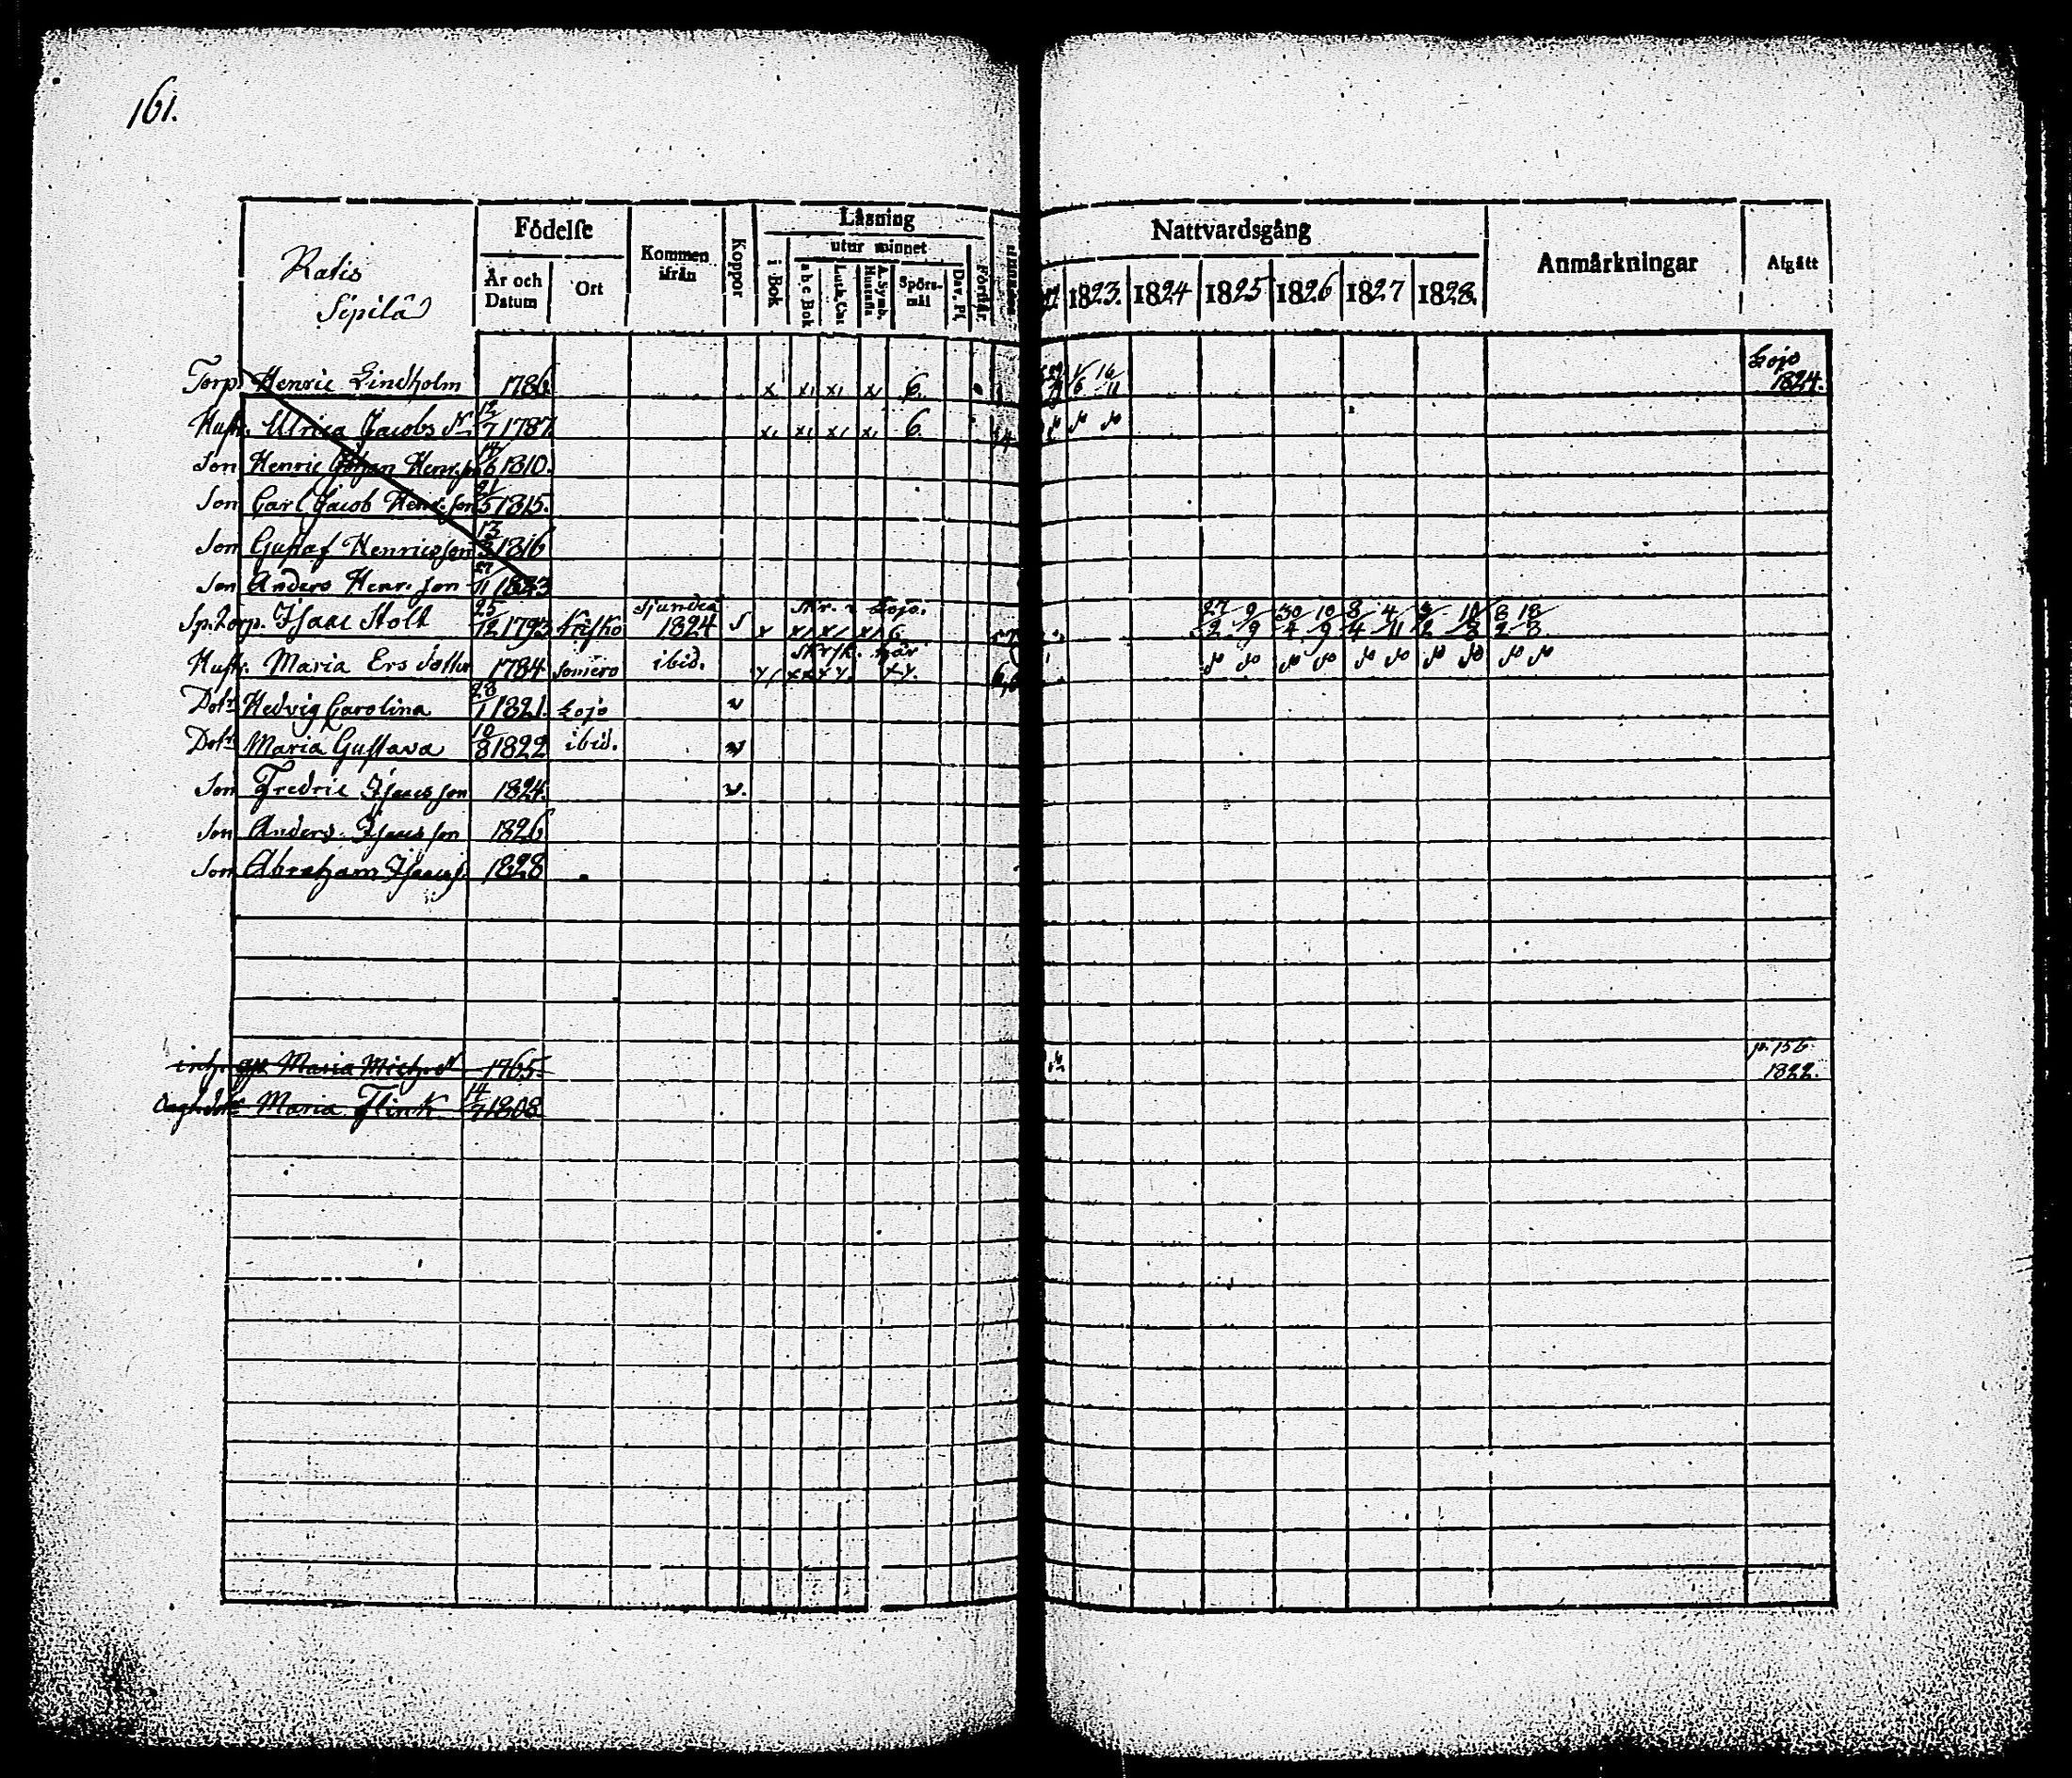 161.
Ratis
Sipilä
Födelse
År och Datum
Ort
Kommen ifrån
Koppor
Läsning
i Bok
utur minnet
a b c Bok
Luth. Cat
A. Symb. Hustafla
Spörs-mål
Dav. Ps.
Förstår.
Nattvardsgång
1823. 1824 1825 1826 1827 1828.
Anmärkningar
Afgått
Torp. Henric Lindholm 1786. x x x x 6. Lojo 1824.
Hustr. Ulrica Jacobs dr 12/7 1787. x x x x 6.
Son Henric Johan Henr. son 1810.
Son Carl Jacob Henr. son 21/5 1815.
Son Gustaf Henricsson 1816
Son Anders Henr. son 27/11 1823
Sp. torp. Isaac Stolt 25/12 1793 Kisko Sjundeå 1824 Lojo. 27/2 9/9 30/4 10/9 8/4 4/11 10/8 18/8
Hustr. Maria Ers dotter 1784 Somero ibid.
Dotr Hedvig Carolina 28/1 1821. Lojo
Dotr Maria Gustava 10/8 1822 ibid.
Son Fredric Isaacs son 1824.
Son Anders Isaacs son 1826
Son Abraham Isaacs s. 1828
inh. Maria Mich. dr 1765. p. 156. 1822.
Maria Flink 14/7 1808